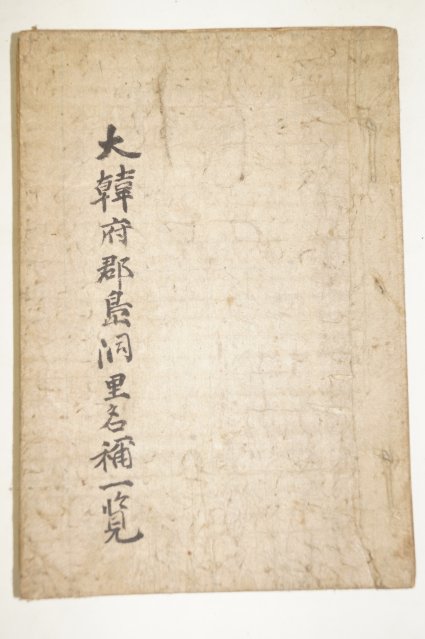 大韓府郡島洞里名稱一覽